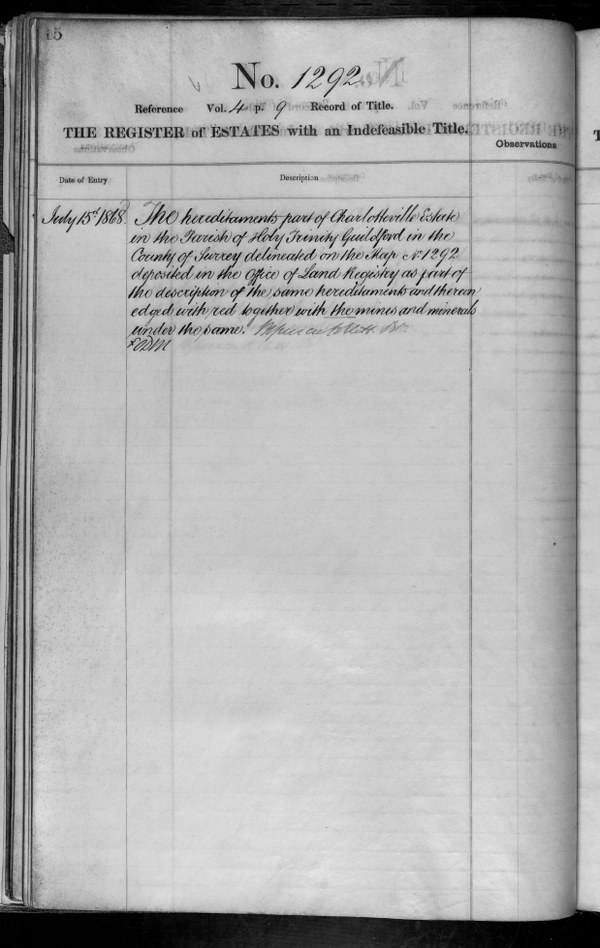 No. 1292
Reference Vol. 4 p. 9 Record of Title.
THE REGISTER of ESTATES with an Indefeasible Title.
Observations
Date of Entry
Description
July 15th 1868
The hereditaments part of Charlotteville Estate
in the Parish of Holy Trinity Guildford in the
County of Surrey delineated on the Map No 1292
deposited in the Office of Land Registry as part of
the description of the same hereditaments and thereon
edged with red together with the mines and minerals
under the same.